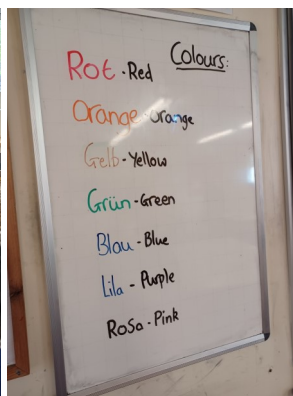 Colours:
Rot - Red
Orange - Orange
Gelb - Yellow
Grün - Green
Blau - Blue
Lila - Purple
Rosa - Pink